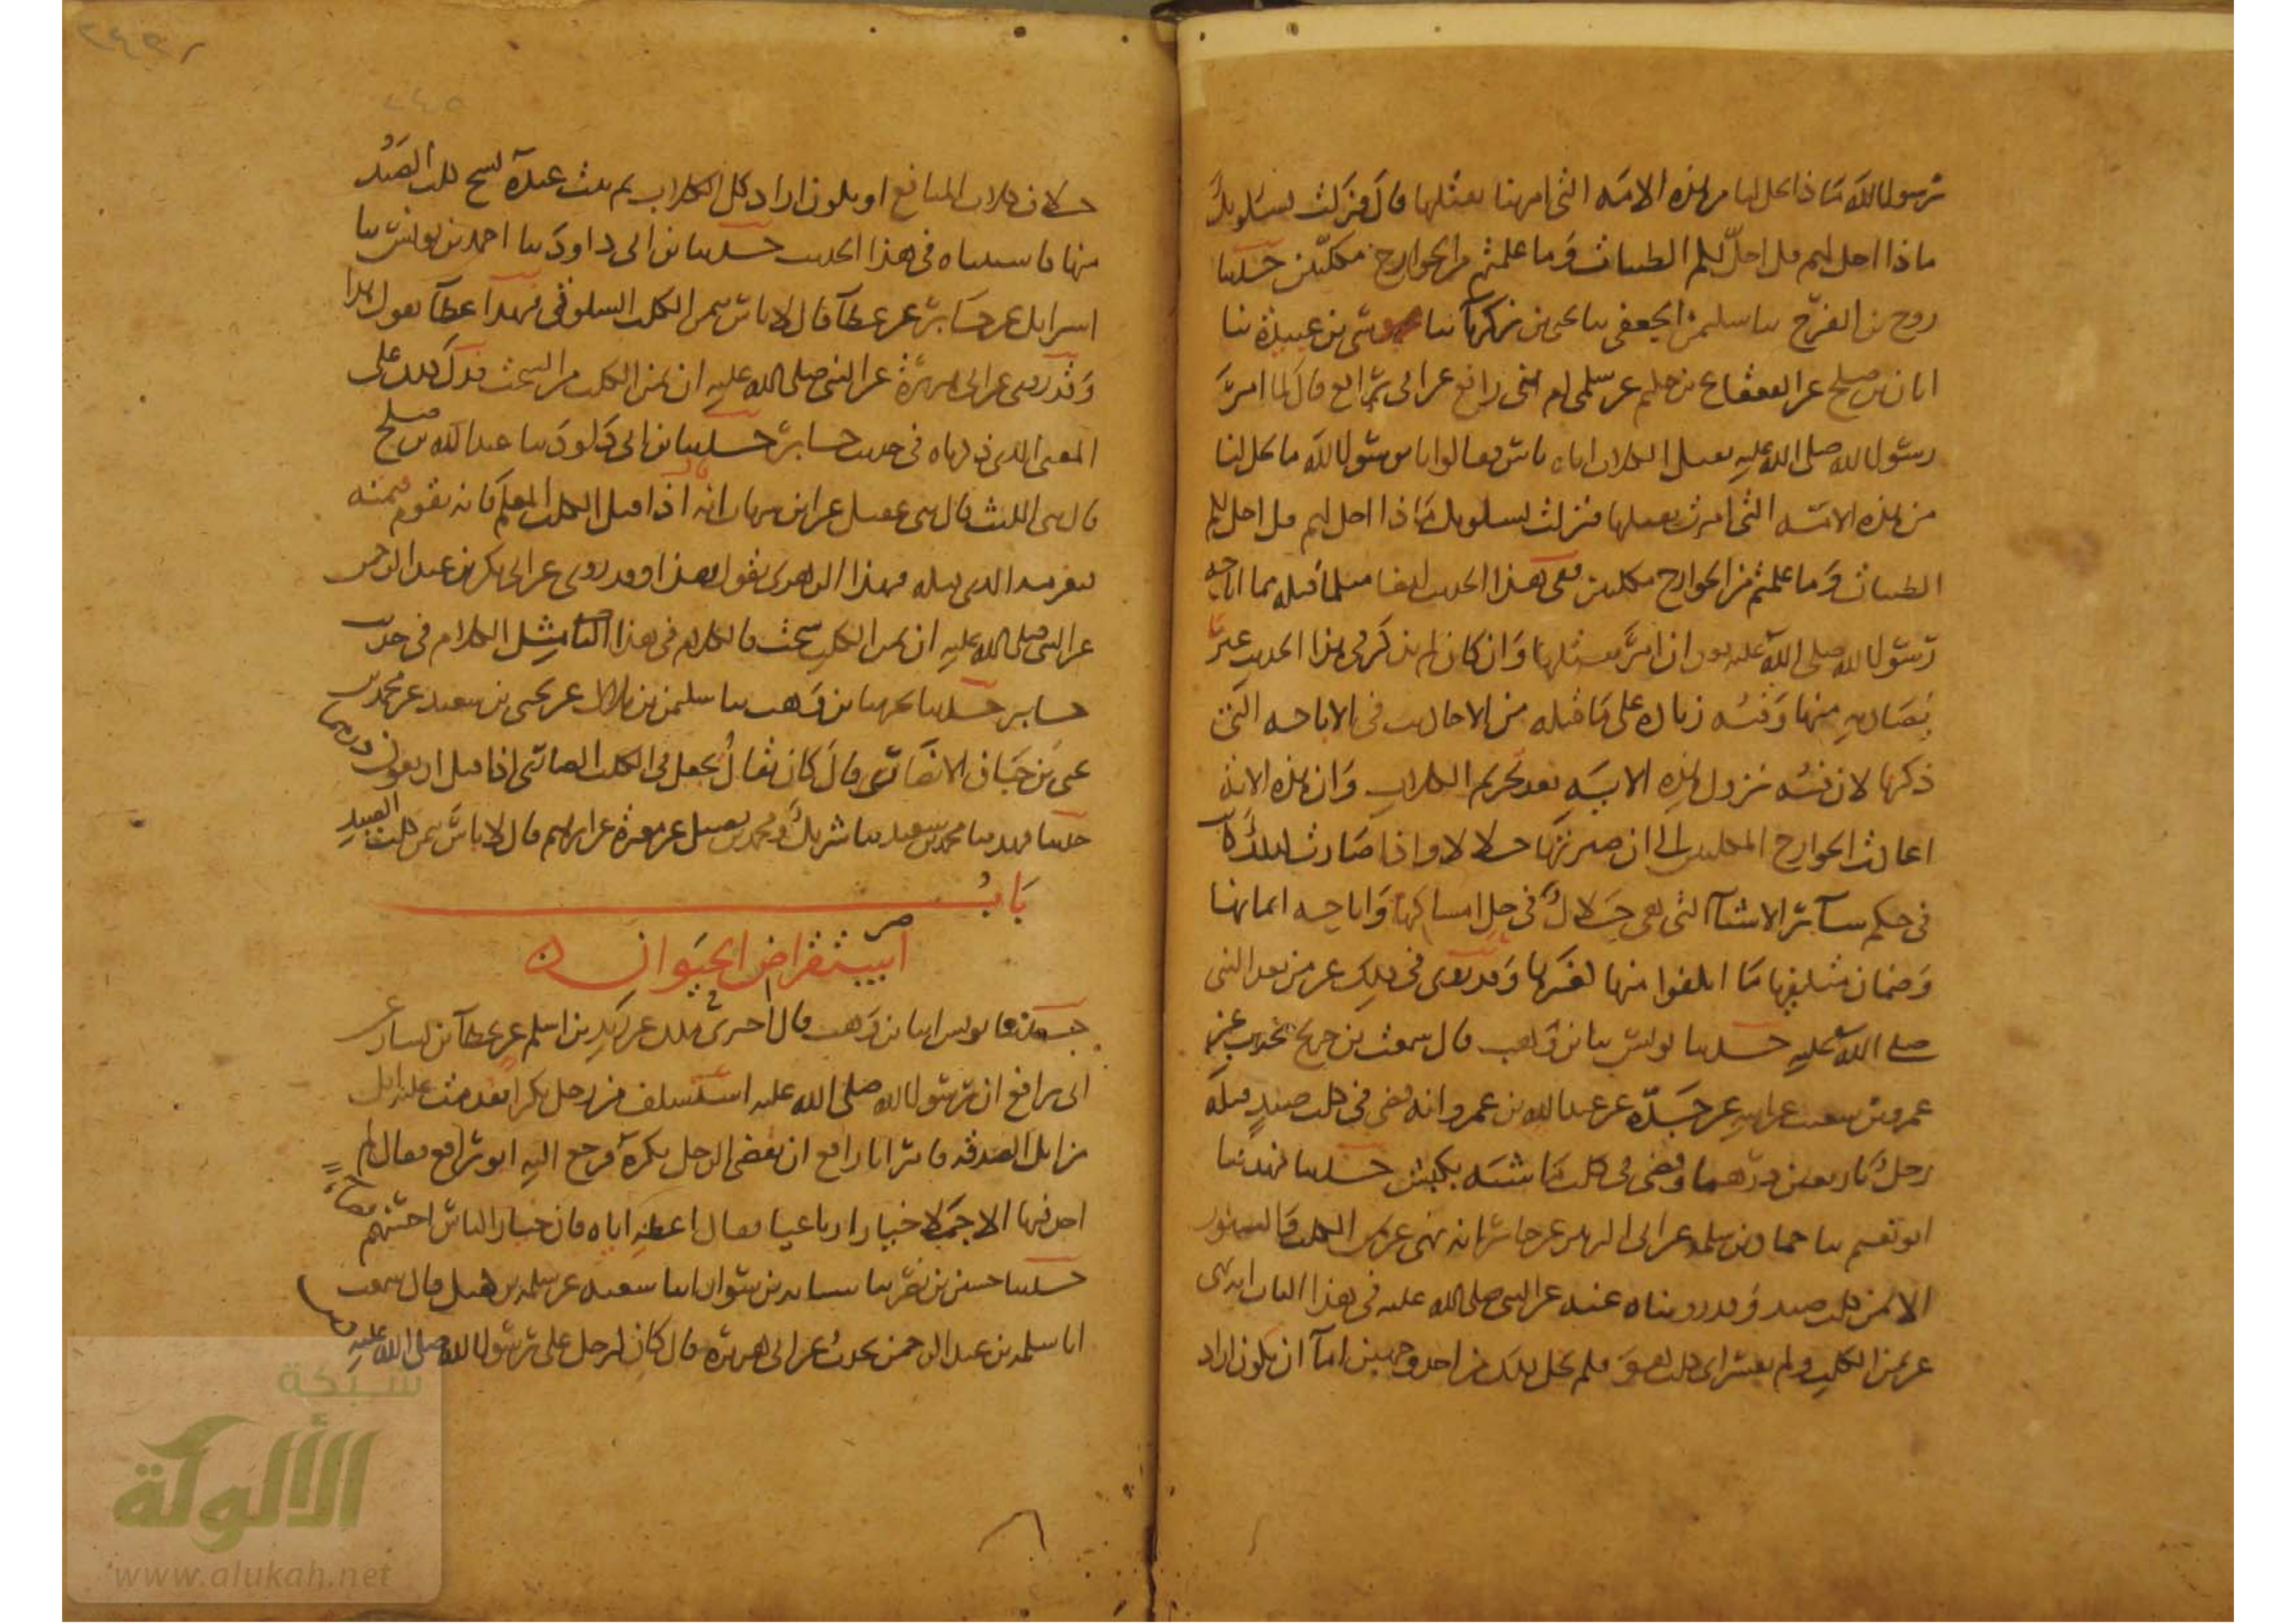 رسول الله ماذا يحل لنا من هذه الامة التي امرتنا بقتلها قال فنزلت يسئلونك
ماذا احل لهم قل احل لكم الطيبات وما علمتم من الجوارح مكلبين حدثنا
روح بن الفرج نا يحيى بن سليمن الجعفي نا يحيى بن زكريا نا موسى بن عبيدة نا
ابان بن صلح عن القعقاع بن حكيم عن سلمى ام بني رافع عن ابي رافع قال لما امر
رسول الله صلى الله عليه بقتل الكلاب اتاه ناس فقالوا يا رسول الله ما يحل لنا
من هذه الامة التي امرت بقتلها فنزلت يسلونك ماذا احل لهم قل احل لكم
الطيبات وما علمتم من الجوارح مكلبين ففي هذا الحديث ايضا مثل ما قبله مما اباحه
رسول الله صلى الله عليه بعد ان امر بقتلها وان كان لم يذكر في هذا الحديث غير
يصاد به منها وفيه زياده على ما قبله من الاحاديث في الاباحه التي
ذكرها لان فيه نزول هذه الايه بعد تحريم الكلاب وان هذه الاية
اعادت الجوارح المكلبين الى ان صيرتها حلالا واذا صارت كذلك كانت
في حكم سائر الاشيآ التي هي حلال في حل امساكها واباحه اثمانها
وضمان متلفيها ما اتلفوا منها كغيرها وقد روي في ذلك عن من بعد النبي
صلى الله عليه حدثنا يونس نا بن وهب قال سمعت بن جريج يحدث عن
عمرو بن شعيب عن ابيه عن جده عن عبد الله بن عمرو انه قضى في كلب صيد قتله
رجل باربعين درهما وقضى في كلب ماشيه بكبش حدثنا فهد نا
ابو نعيم نا حماد بن سلمه عن ابي الزبير عن جابر انه نهى عن ثمن الكلب والسنور
الا ثمن كلب صيد وقد روينا عنه عن النبي صلى الله عليه في هذا الباب انه نهى
عن ثمن الكلب ولم يفسر اي كلب هو فلم يخل ذلك من احد وجهين اما ان يكون اراد
٢٤٥
حلاف كلاب المنافع او يكون اراد كل الكلاب ثم ثبت عنده نسخ كلب الصيد
منها فاستثناه في هذا الحديث حدثنا بن ابي داود نا احمد بن يونس نا
اسرايل عن جابر عن عطآ قال لا باس بثمن الكلب السلوقي فهذا عطآ يقول هذا
وقد روى عن ابي هريرة عن النبي صلى الله عليه ان ثمن الكلب من السحت فدل ذلك على
المعنى الذي ذكرناه في حديث جابر حدثنا بن ابي داود نا عبد الله بن صلح
قال حدثني الليث قال حدثني عقيل عن ابن شهاب انه قال اذا قتل الكلب المعلم فانه يقوم قيمته
فيغرمه الذي قتله فهذا الزهري يقول هذا وقد روى عن ابي بكر بن عبد الرحمن
عن النبي صلى الله عليه ان ثمن الكلب سحت فالكلام في هذا مثل الكلام في حديث
جابر حدثنا بحر نا بن وهب نا سليمن بن بلال عن يحيى بن سعيد عن محمد بن
يحيى بن حبان الانصاري قال كان يقال يجعل في الكلب الضاري اذا قتل اربعون درهما
حدثنا فهد نا محمد بن سعيد نا شريك ومحمد بن فضيل عن مغيرة عن ابراهيم قال لا باس بثمن كلب الصيد
باب
استقراض الحيوان
حدثنا يونس انا بن وهب قال اخبرني ملك عن زيد بن اسلم عن عطآ بن يسار عن
ابي رافع ان رسول الله صلى الله عليه استسلف من رجل بكرا فقدمت عليه ابل
من ابل الصدقه فامر ابا رافع ان يقضي الرجل بكره فرجع اليه ابو رافع فقال لم
اجد فيها الا جملا خيارا رباعيا فقال اعطه اياه فان خيار الناس احسنهم قضاء
حدثنا حسين بن نصر نا شبابه بن سوار نا شعبه عن سلمه بن كهيل قال سمعت
ابا سلمه بن عبد الرحمن يحدث عن ابي هريره قال كان لرجل على رسول الله صلى الله عليه دين
شبكة
الألوكة
www.alukah.net